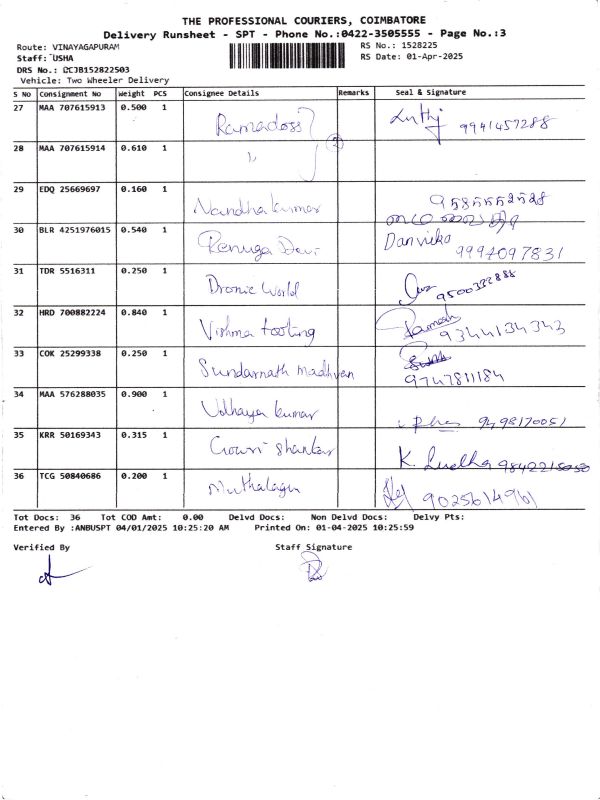 THE PROFESSIONAL COURIERS, COIMBATORE
Delivery Runsheet - SPT - Phone No.:0422-3505555 - Page No.:3
Route: VINAYAGAPURAM RS No.: 1528225
Staff: USHA RS Date: 01-Apr-2025
DRS No.: DCJB152822503
Vehicle: Two Wheeler Delivery
S No Consignment No Weight PCS Consignee Details Remarks Seal & Signature
27 MAA 707615913 0.500 1 Ramadoss 9941457288
28 MAA 707615914 0.610 1 " 2
29 EDQ 25669697 0.160 1 Nandha kumar 9585552528
30 BLR 4251976015 0.540 1 Renuga Devi Danvika 9994097831
31 TDR 5516311 0.250 1 Dronic World 9500332888
32 HRD 700882224 0.840 1 Vishma tooting Ramesh 9344134343
33 COK 25299338 0.250 1 Sundarnath madhvan 9747811184
34 MAA 576288035 0.900 1 Udhaya kumar 9498170051
35 KRR 50169343 0.315 1 Gowri Shankar K. Sudha 9842215050
36 TCG 50840686 0.200 1 Muthalagu 9025614961
Tot Docs: 36 Tot COD Amt: 0.00 Delvd Docs: Non Delvd Docs: Delvy Pts:
Entered By :ANBUSPT 04/01/2025 10:25:20 AM Printed On: 01-04-2025 10:25:59
Verified By Staff Signature